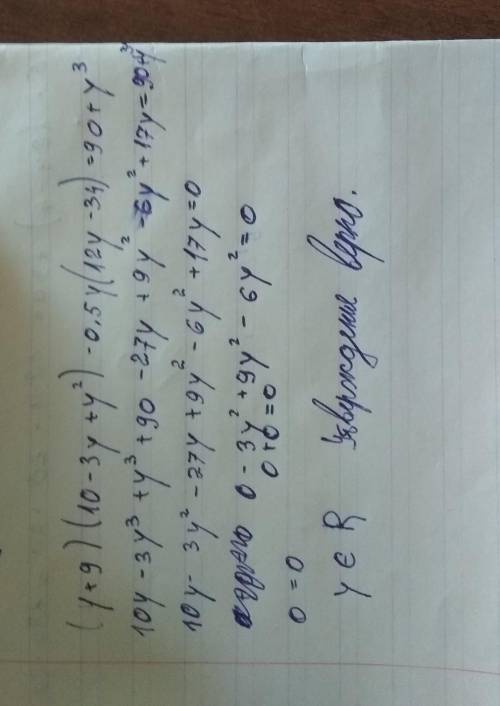 (y+9)(10-3y+y²)-0.5y(12y-34)=90+y³
10y-3y³+y³+90-27y+9y²-6y²+17y=90+y³
10y-3y²-27y+9y²-6y²+17y=0
0-3y²+9y²-6y²=0
0+0=0
0=0
y∈R Утверждение верно.